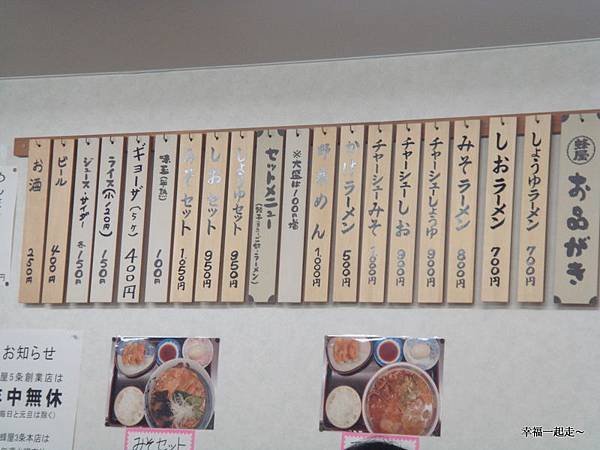 蜂屋
お品がき
しょうゆラーメン 700円
しおラーメン 700円
みそラーメン 800円
チャーシューしょうゆ 900円
チャーシューしお 900円
チャーシューみそ
かけラーメン 500円
野菜めん 1,000円
※大盛は100円増
セットメニュー
しょうゆセット 950円
しおセット 950円
みそセット 1,050円
100円
ギョーザ(5ケ) 400円
ライス(小120円) 150円
ジュース・サイダー 各150円
ビール 400円
お酒 250円
お知らせ
屋5条創業店は
年中無休
毎日と元旦は除く)
蜂屋3条本店は
みそセット
幸福一起走～